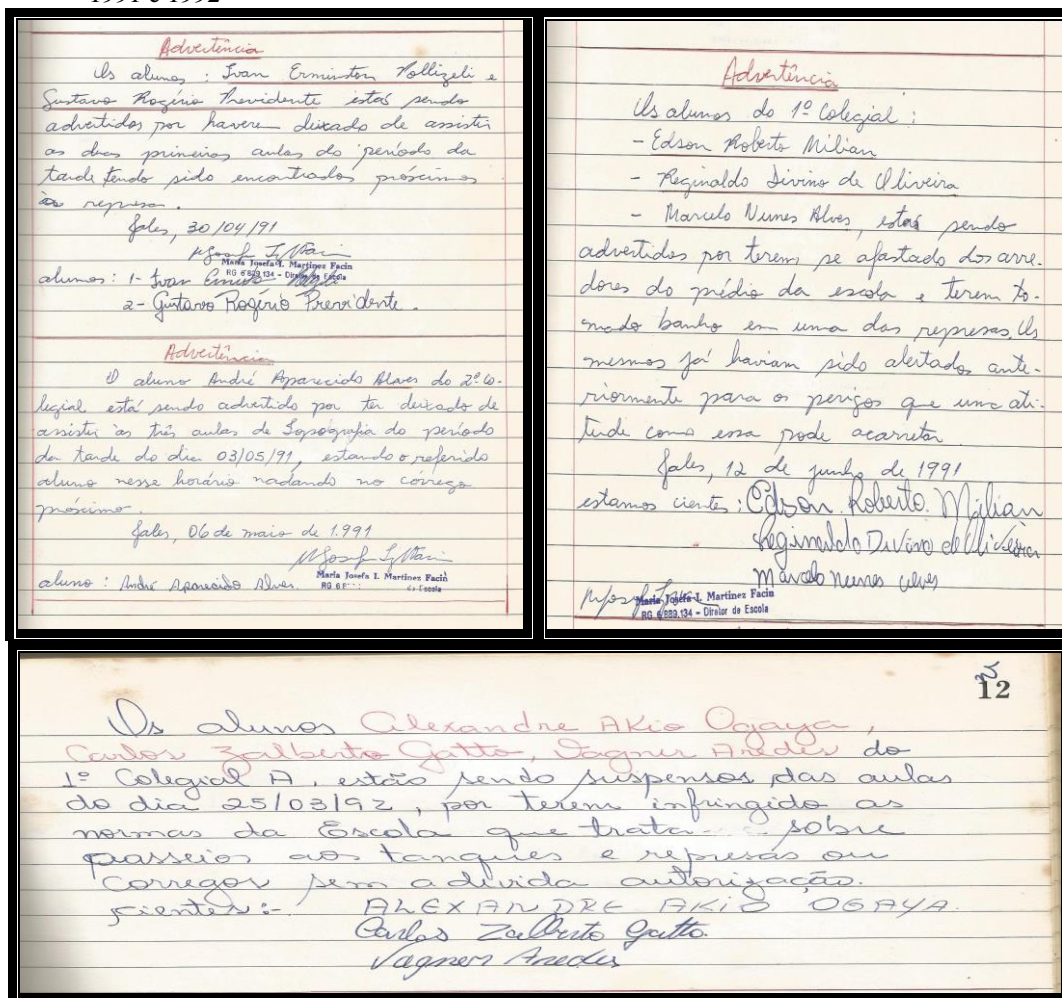 1991 e 1992
Advertência
Os alunos : Ivan Erminton Pollizeli e
Gustavo Rogério Previdente estão sendo
advertidos por haverem deixado de assistir
as duas primeiras aulas do período da
tarde tendo sido encontrados próximos
às represa.
Jales, 30/04/91
Maria Josefa I. Martinez Facin
RG 6 889,134 - Diretor de Escola
alunos : 1- Ivan
2- Gustavo Rogério Previdente.
Advertência
O aluno André Aparecido Alves do 2º Co-
legial está sendo advertido por ter deixado de
assistir às três aulas de Topografia do período
da tarde do dia 03/05/91, estando o referido
aluno nesse horário nadando no córrego
próximo.
Jales, 06 de maio de 1.991
Maria Josefa I. Martinez Facin
RG 6 de Escola
aluno : André Aparecido Alves.
Advertência
Os alunos do 1º Colegial :
- Edson Roberto Milian
- Reginaldo Divino de Oliveira
- Marcelo Nunes Alves, estão sendo
advertidos por terem se afastado dos arre-
dores do prédio da escola e terem to-
mado banho em uma das represas. Os
mesmos já haviam sido alertados ante-
riormente para os perigos que uma ati-
tude como essa pode acarretar.
Jales, 12 de junho de 1991
estamos cientes : Edson. Roberto. Milian
Reginaldo Divino de Oliveira
Marcelo nunes alves
Maria Josefa I. Martinez Facin
RG 6/889,134 - Diretor de Escola
12
Os alunos Alexandre Akio Ogaya,
Carlos Zalberto Gatto, Vagner Aredes do
1º Colegial A, estão sendo suspensos das aulas
do dia 25/03/92, por terem infringido as
normas da Escola que trata sobre
passeios aos tanques e represas ou
corregos sem a divida autorização.
cientes :- ALEXANDRE AKIO OGAYA.
Carlos Zalberto Gatto
Vagner Aredes